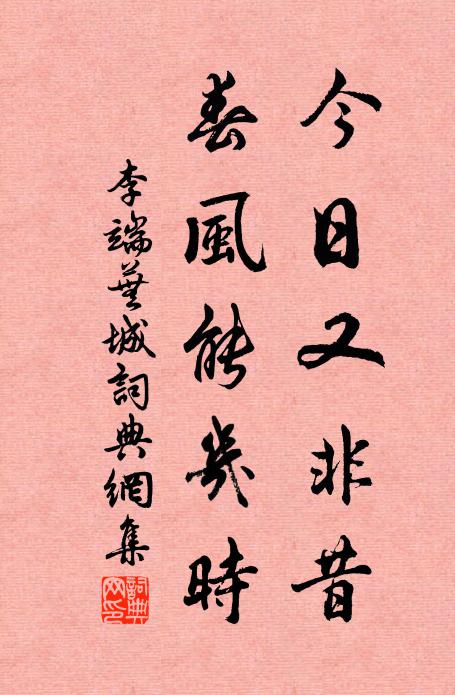 今日又非昔
春風能幾時
李端蕪城詞典網集
詞典網印